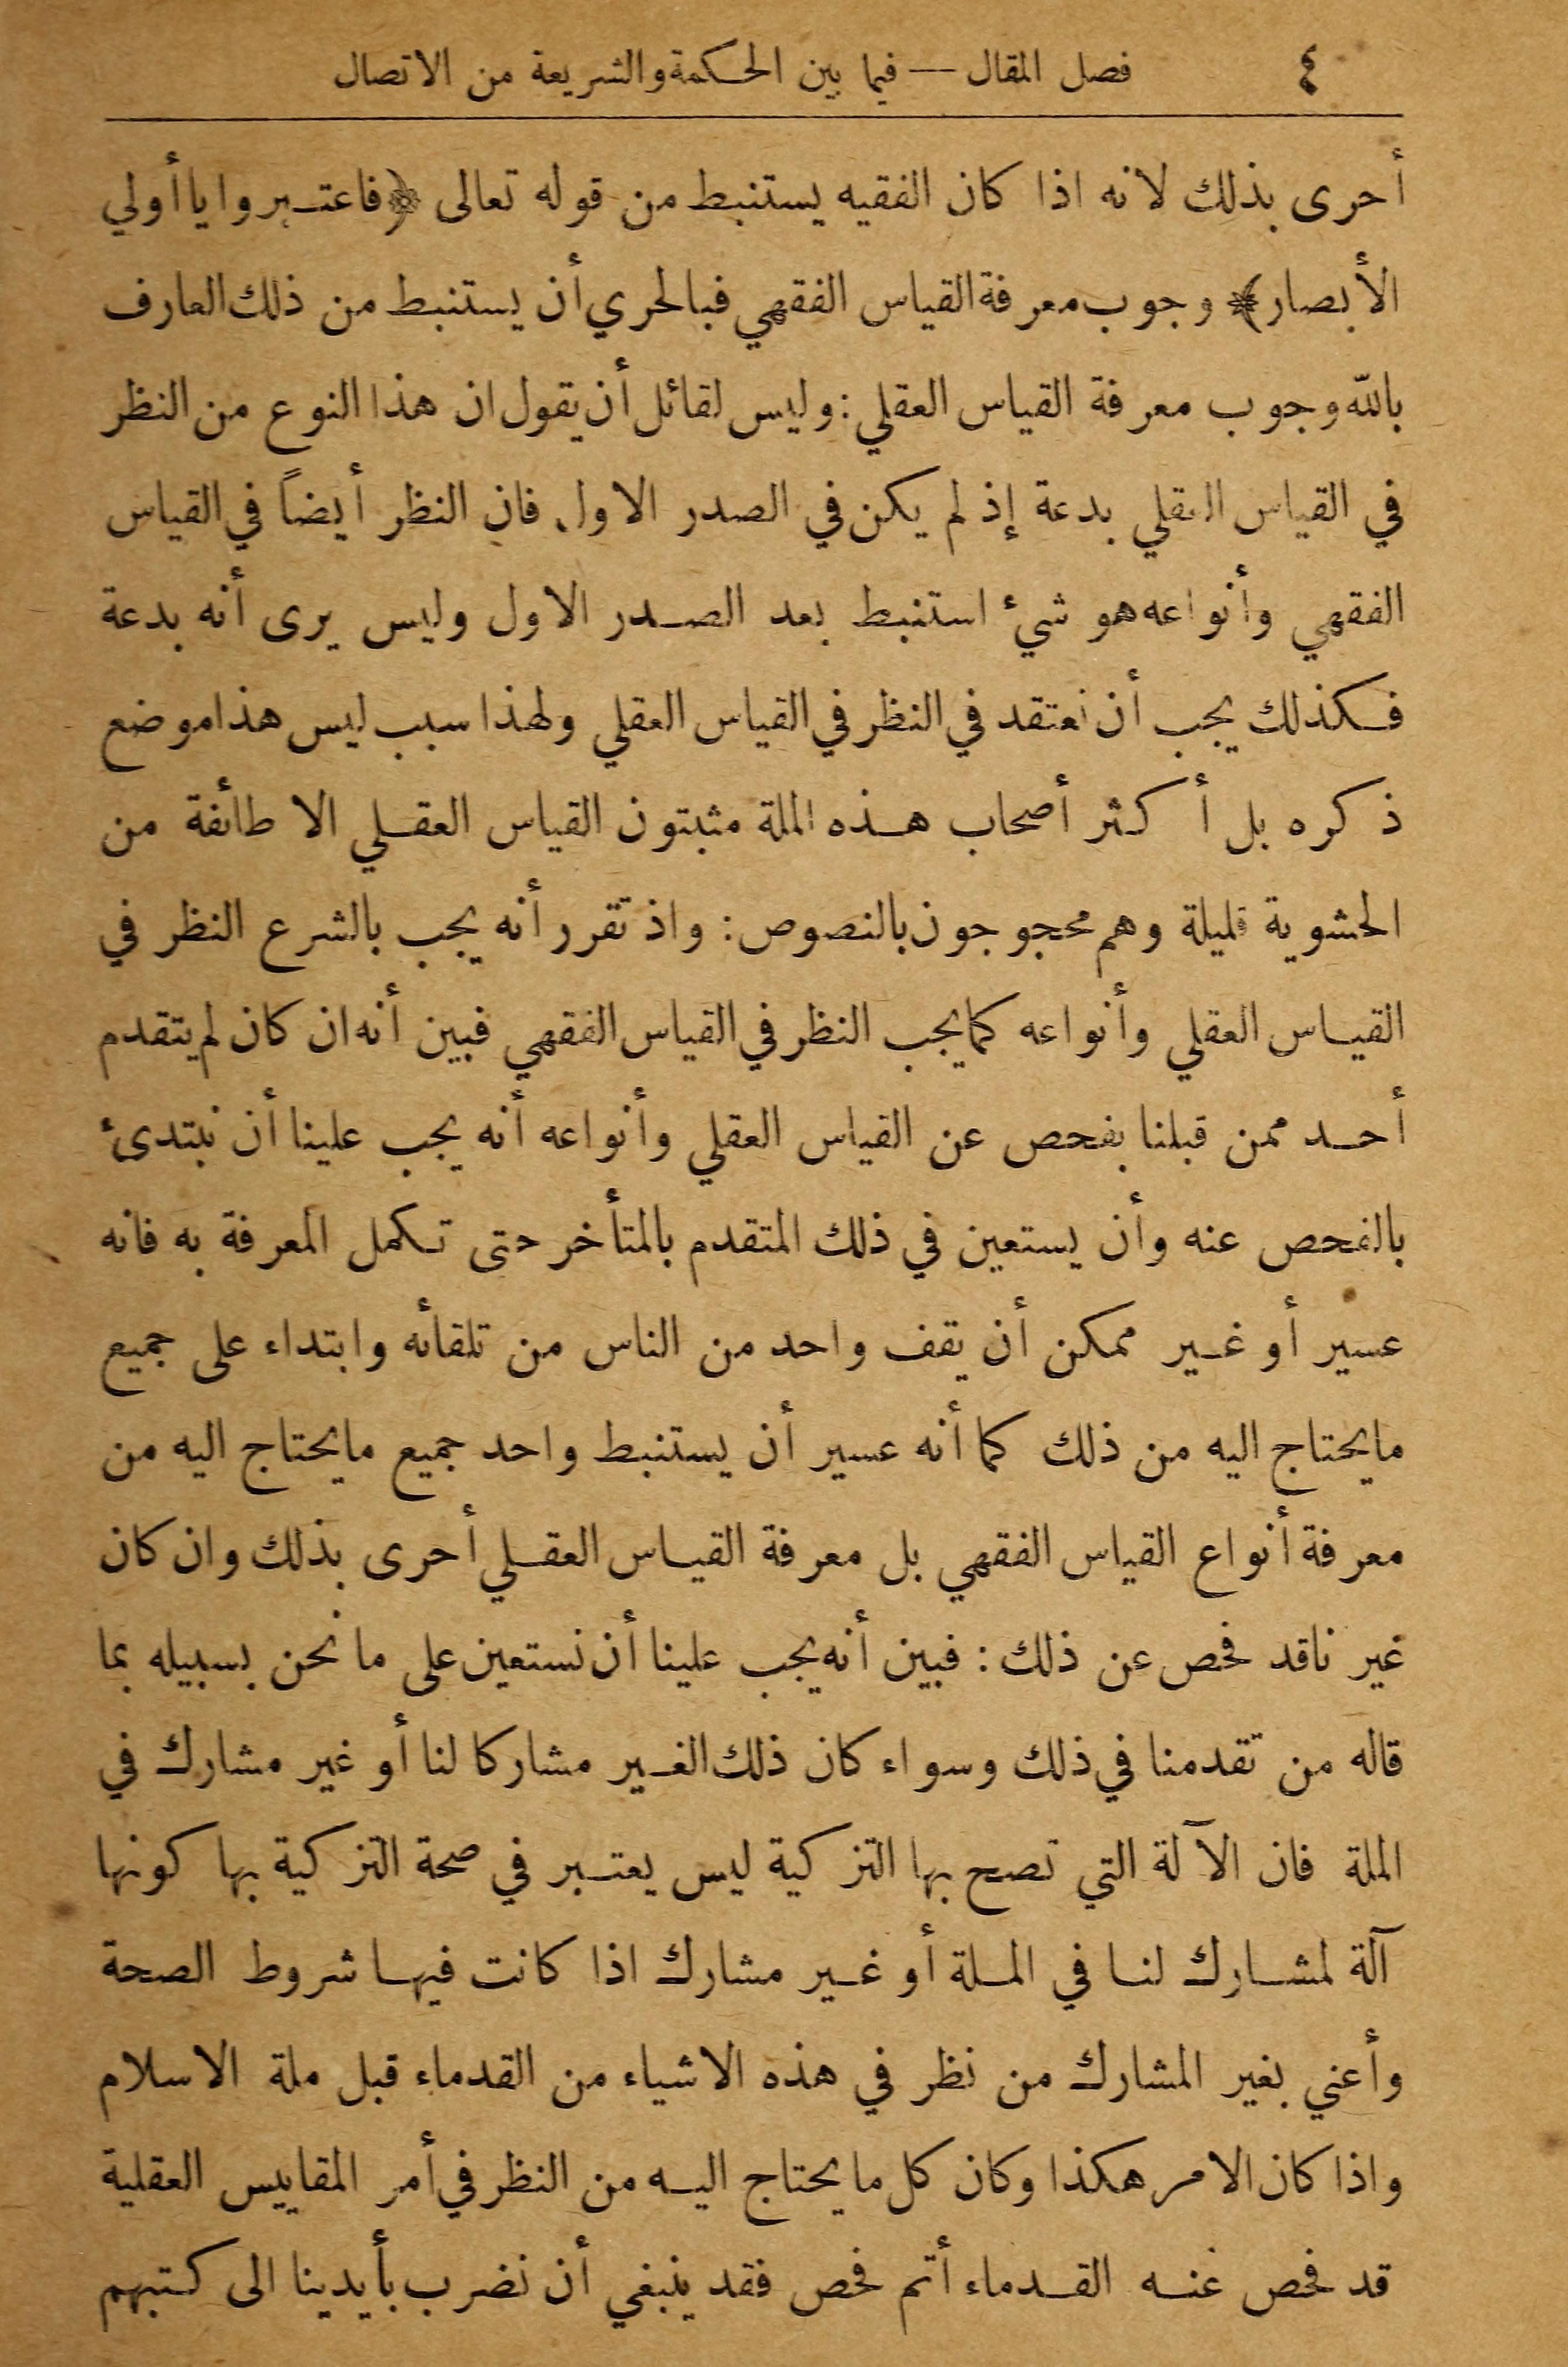 ٤ فصل المقال — فيما بين الحكمة والشريعة من الاتصال
أحرى بذلك لانه اذا كان الفقيه يستنبط من قوله تعالى ﴿فاعتبروا يا أولي
الأبصار﴾ وجوب معرفة القياس الفقهي فبالحري أن يستنبط من ذلك العارف
بالله وجوب معرفة القياس العقلي : وليس لقائل أن يقول ان هذا النوع من النظر
في القياس العقلي بدعة إذ لم يكن في الصدر الاول فان النظر أيضاً في القياس
الفقهي وأنواعه هو شيء استنبط بعد الصدر الاول وليس يرى أنه بدعة
فكذلك يجب أن نعتقد في النظر في القياس العقلي ولهذا سبب ليس هذا موضع
ذكره بل أكثر أصحاب هذه الملة مثبتون القياس العقلي الا طائفة من
الحشوية قليلة وهم محجوجون بالنصوص : واذ تقرر أنه يجب بالشرع النظر في
القياس العقلي وأنواعه كما يجب النظر في القياس الفقهي فبين أنه ان كان لم يتقدم
أحد ممن قبلنا بفحص عن القياس العقلي وأنواعه أنه يجب علينا أن نبتدئ
بالفحص عنه وأن يستعين في ذلك المتقدم بالمتأخر حتى تكمل المعرفة به فانه
عسير أو غير ممكن أن يقف واحد من الناس من تلقائه وابتداء على جميع
ما يحتاج اليه من ذلك كما أنه عسير أن يستنبط واحد جميع ما يحتاج اليه من
معرفة أنواع القياس الفقهي بل معرفة القياس العقلي أحرى بذلك وان كان
غير ناقد فحص عن ذلك : فبين أنه يجب علينا أن نستعين على ما نحن بسبيله بما
قاله من تقدمنا في ذلك وسواء كان ذلك الغير مشاركا لنا أو غير مشارك في
الملة فان الآلة التي تصح بها التزكية ليس يعتبر في صحة التزكية بها كونها
آلة لمشارك لنا في الملة أو غير مشارك اذا كانت فيها شروط الصحة
وأعني بغير المشارك من نظر في هذه الاشياء من القدماء قبل ملة الاسلام
واذا كان الامر هكذا وكان كل ما يحتاج اليه من النظر في أمر المقاييس العقلية
قد فحص عنه القدماء أتم فحص فقد ينبغي أن نضرب بأيدينا الى كتبهم